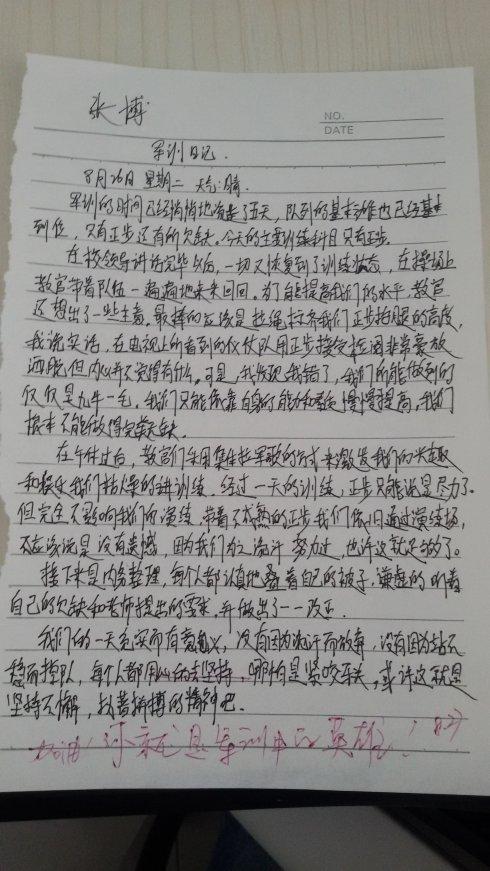 张博
NO.
DATE
军训日记.
8月26日 星期二 天气:晴
军训的时间已经悄悄地溜走了五天，队列的基本动作也已经基本
到位，只有正步还有所欠缺。今天的主要训练科目只有正步。
在校领导讲话完毕以后，一切又恢复到了训练状态，在操场上
教官带着队伍一遍遍地来来回回。为了能提高我们的水平，教官
还想出了一些主意。最棒的应该是拉绳来条我们正步抬腿的高度，
我说实话，在电视上所看到的仪仗队用正步接受检阅非常豪放
洒脱但内心并不觉得有什么。可是，我发现我错了，我们所能做到的
仅仅是九牛一毛。我们只能依靠自身的能力和素质慢慢提高，我们
根本不能做得完美无缺。
在午休过后，教官们采用集体拉军歌的方式来激发我们的兴趣
和娱乐我们枯燥的训练。经过一天的训练，正步只能说是尽力了。
但完全不影响我们的演练，带着不成熟的正步我们依旧通过演练场，
不应该说是没有遗憾，因为我们为之流汗 努力过，也许这就足够了。
接下来是内务整理，每个人都认真地叠着自己的被子，谦虚的听着
自己的欠缺和老师提出的要求。并做出了一一改正。
我们的一天充实而有意义，没有因为流汗而放弃，没有因为站不
稳而掉队，每个人都用心的去坚持，哪怕是紧咬牙关，或许这就是
坚持不懈，执着拼搏的精神吧。
加油! 你就是军训中的英雄!